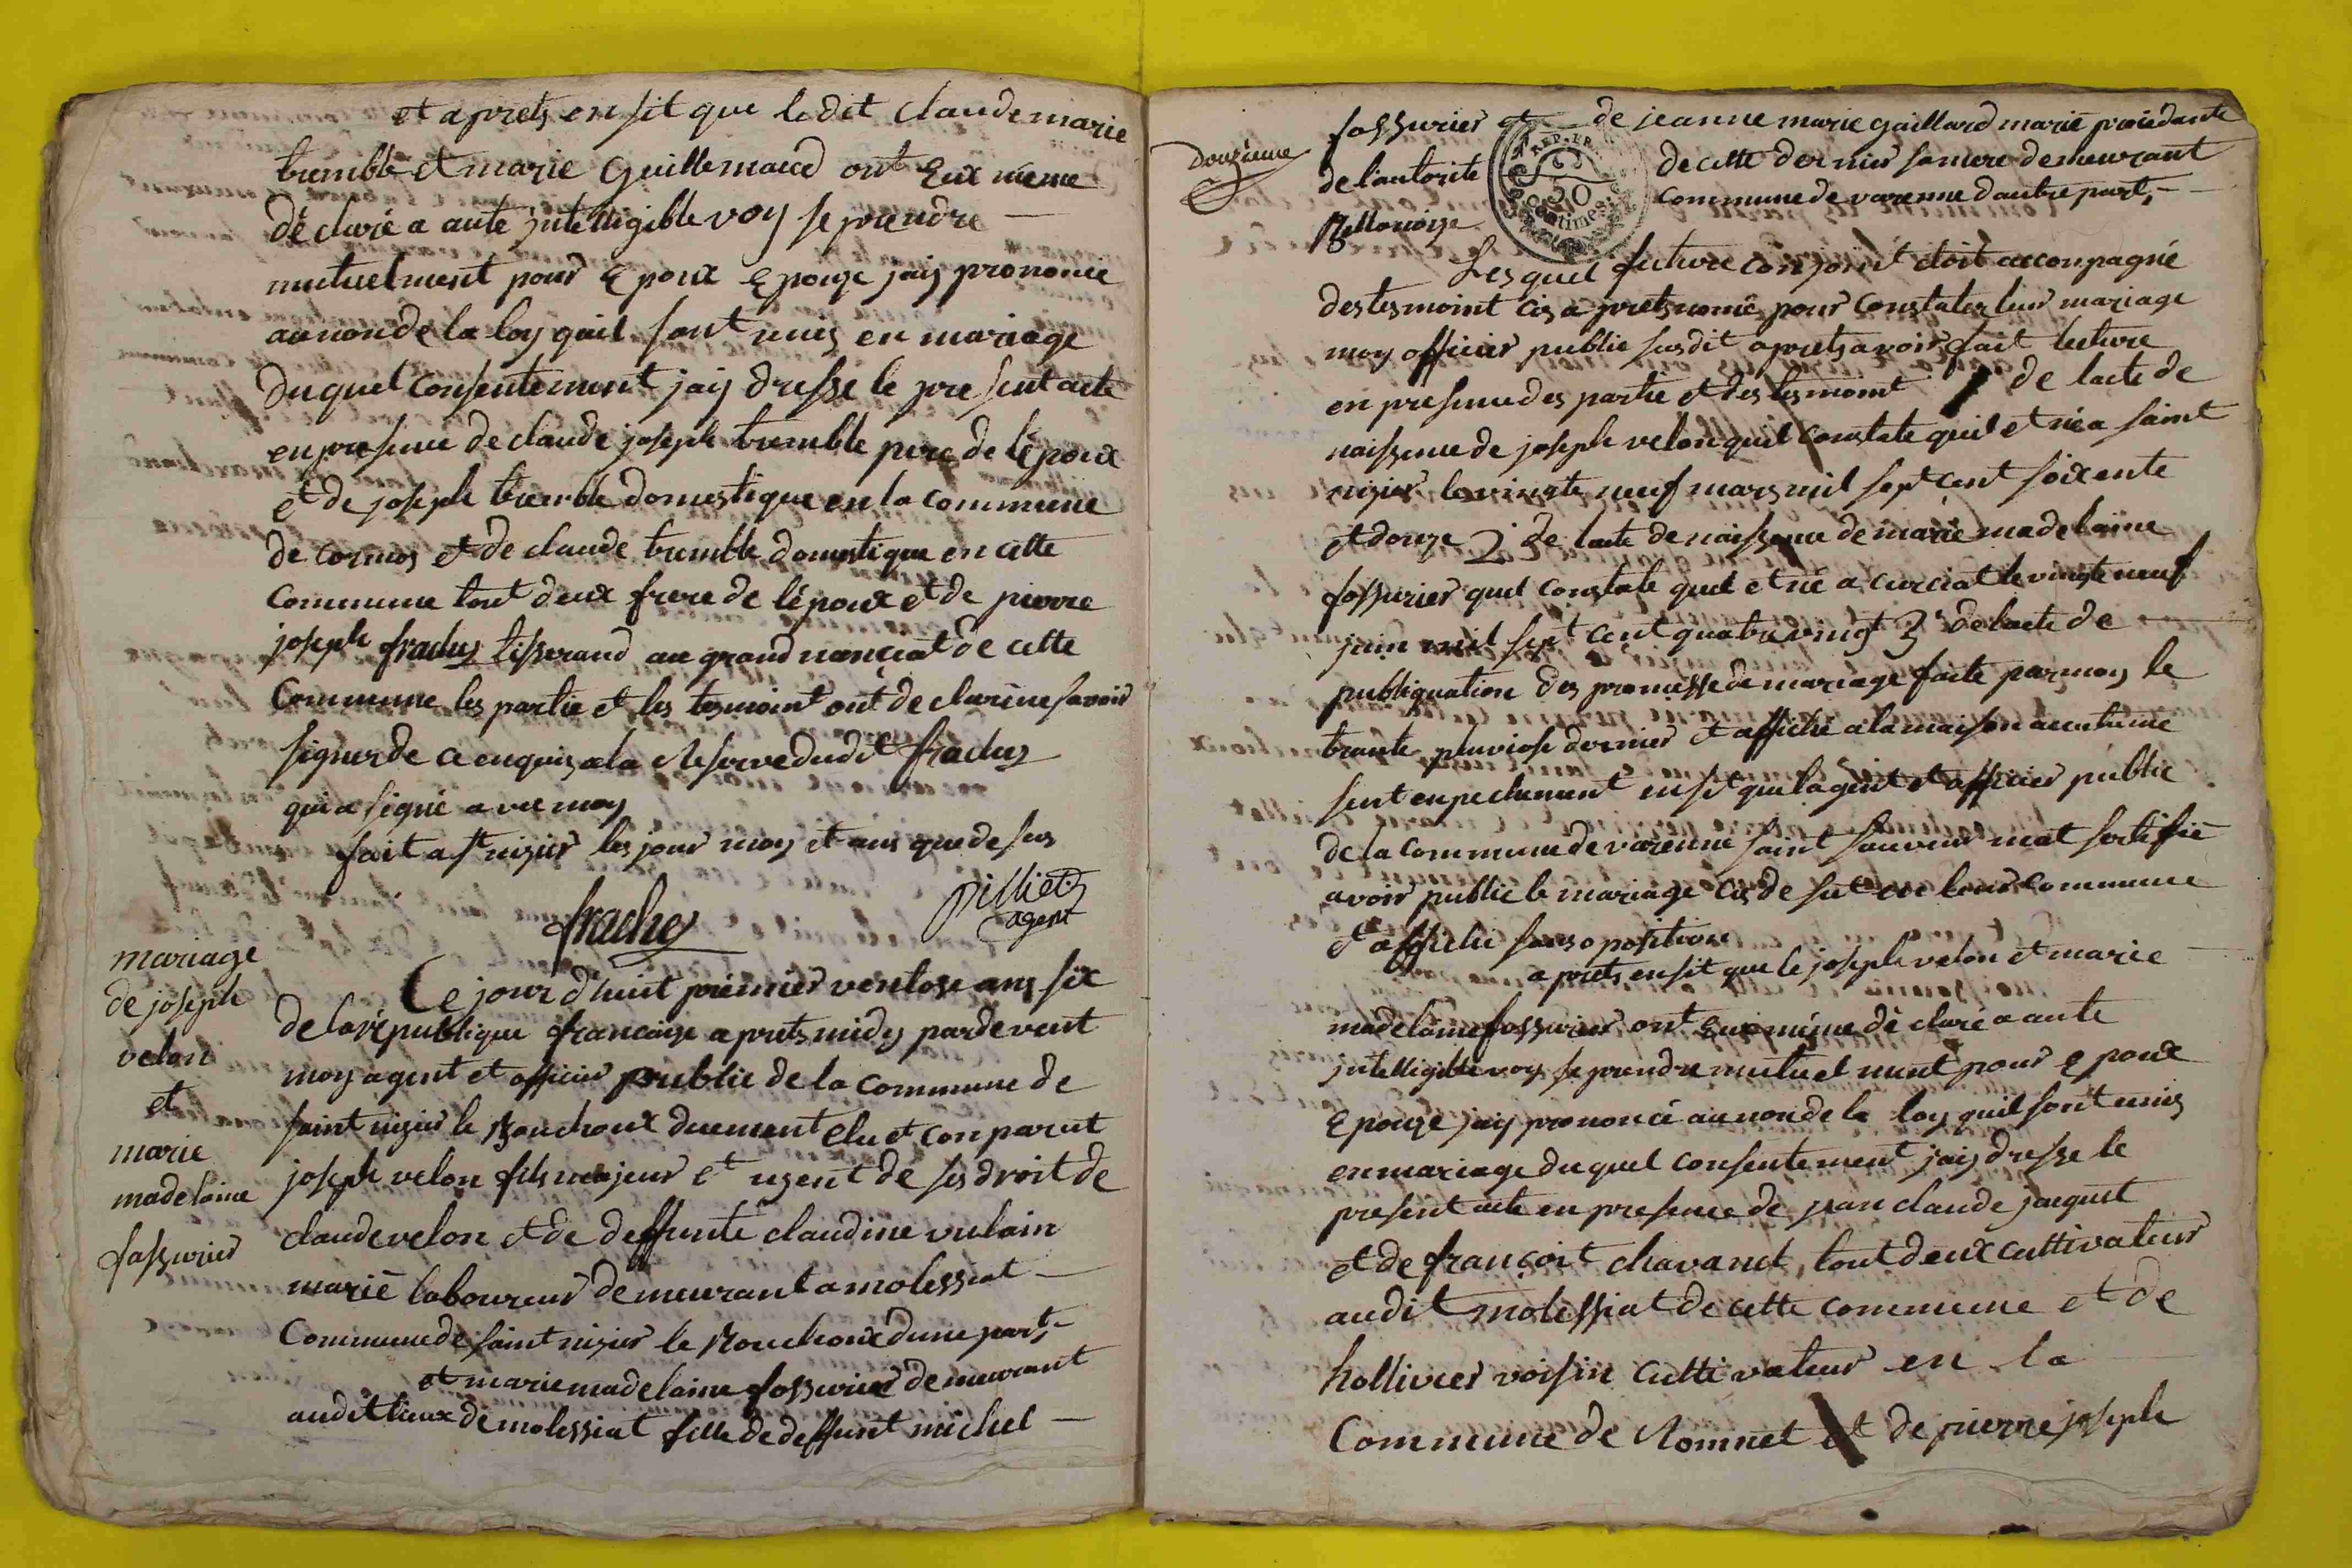 et aprets ensit que ledit claude marie
tremble et marie Guillemaud ont Eux meme
déclaré a aute jntelligible voy se prendre
mutuelment pour Epoux Epouze jaiy prononcé
au non de la loy quil sont unis en mariage
duquel Consentement jaiy dresse le present acte
en presence de claude joseph tremble pere de lépoux
et de joseph tremble domestique en la commune
de cormos et de claude tremble domestique en cette
Commune tout deux frere de lépoux et de pierre
joseph frachey tisserand au grand nanciat de cette
Commune les partie et les tesmoint ont declaré ne savoir
signer de ce enquis a la Reserve dudit frachey
qui a signé avec moy
fait a st nizier les jour moy et ans que de sus
frachey
pilliet
agent
mariage
de joseph
velon
et
marie
madelaine
fossurier
Ce jour d'huit premier ventose ans six
de la république francaize aprets midy pardevent
moy agent et officier public de la commune de
saint nizier le Bouchoux duement elu et conparut
joseph velon fils majeur et uzent de ses droit de
claude velon et de deffunte claudine vulain
marié laboureur demeurant a molissiat
Commune de saint nizier le Bouchoux dune part
et marie madelaine fossurier demeurant
audit lieux de molissiat fille de deffunt michel
douzieme
fossurier et de jeanne marie gaillard marié procedante
de lautorite de cette dernier sa mere demeurant
commune de varenne dautre part
REP. FR.
50
Centimes
Lesquel future conjoint etoit acconpagné
des tesmoint cis aprets nomé pour Constater leur mariage
moy officier public susdit aprets avoir fait lecture
en presence des partie et des tesmoint 1 de lacte de
naissence de joseph velon quil constate quil et né a saint
nizier le vingte neuf mars mil sept cent soixente
et douze 2 de lacte de naissence de marie madelaine
fossurier quil constate quil et né a curciat le vingte neuf
juin mil sept cent quatre vingt 3 de lacte de
publiquation des promesse de mariage faite par moy le
trante pluviose dernier et affiché a la maison acoutumé
sent enpechement ensit que lagent et officier public
de la commune de varenne saint sauveur mat sertifié
avoir public le mariage cis de sut en leur commune
et affiché sans oposition
aprets ensit que le joseph velon et marie
madelaine fossurier ont Eux méme déclaré a aute
jntelligible voy se prendre mutuelment pour Epoux
Epouze jaiy prononcé au non de la loy quil sont unis
en mariage duquel consentement jaiy dresse le
present acte en presence de jean claude jacquet
et de françoit chavanet tout deux cultivateur
audit molissiat de cette commune et de
hollivier voisin cultivateur en la
Commune de Romnet et de pierre joseph